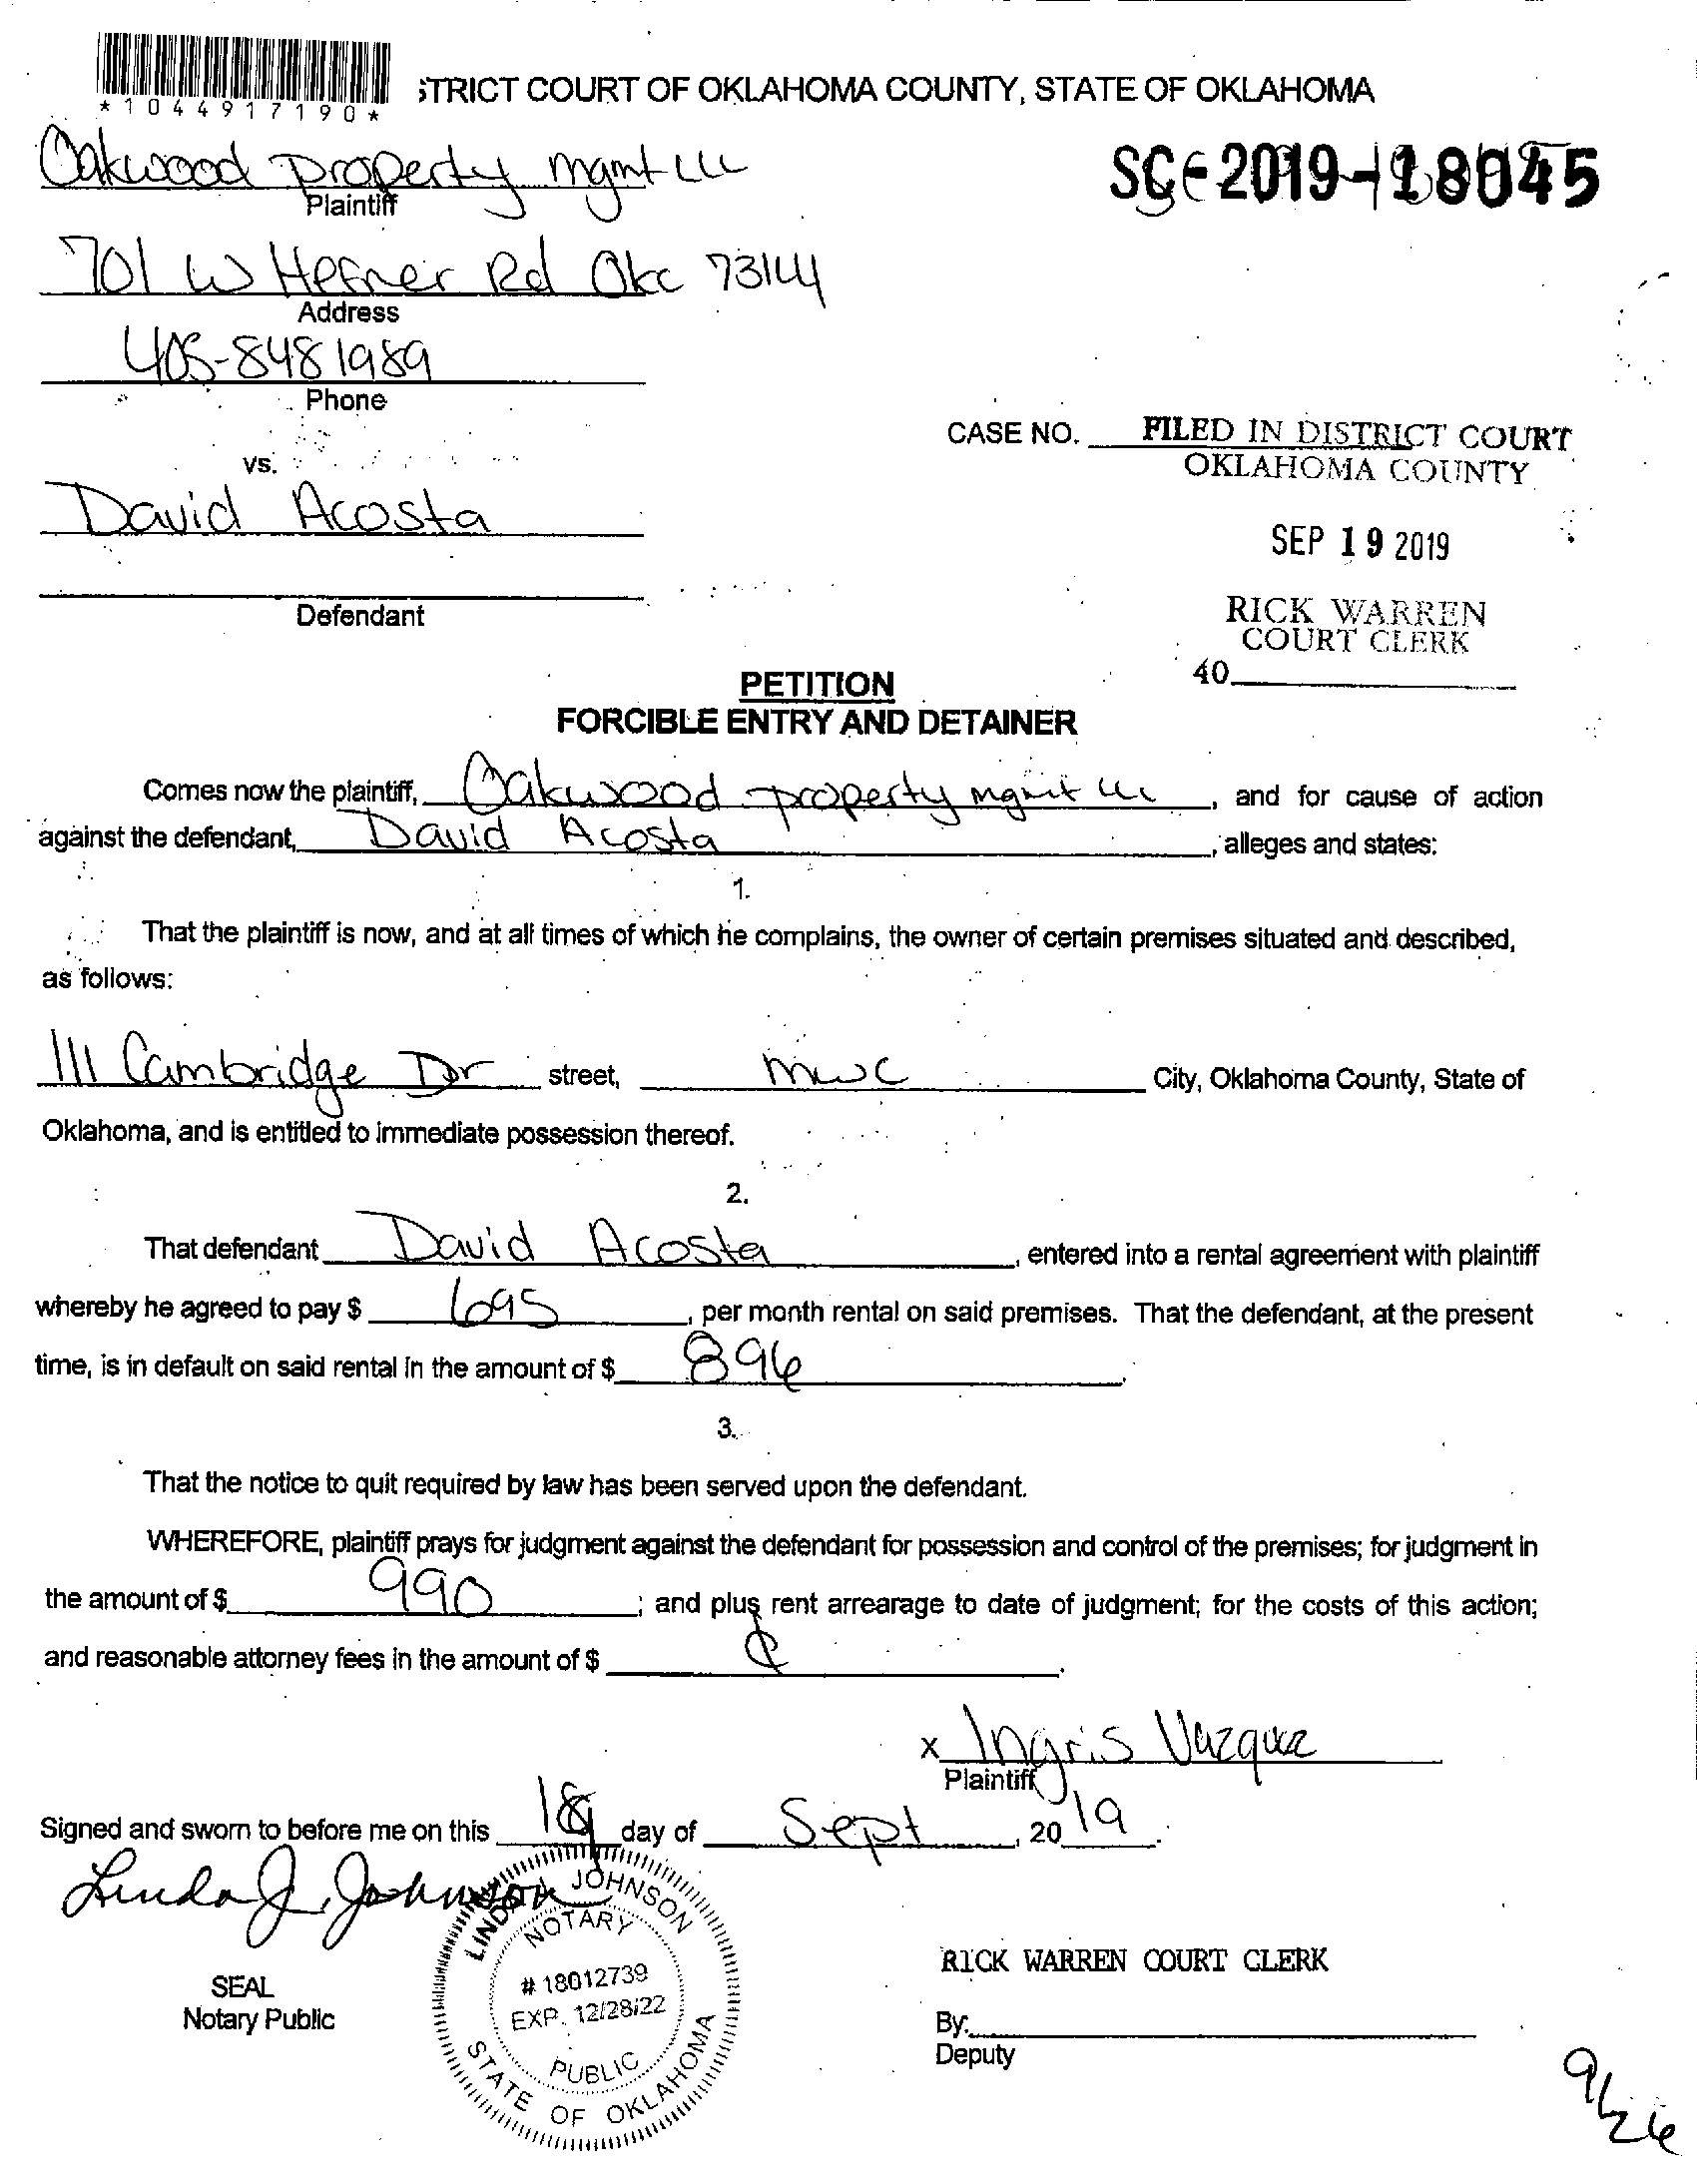 *1044917190*
STRICT COURT OF OKLAHOMA COUNTY, STATE OF OKLAHOMA
Oakwood property mgmt LLC
Plaintiff
701 W Hefner Rd Okc 73144
Address
405-848 1989
Phone
vs.
David Acosta
Defendant
CASE NO.
FILED IN DISTRICT COURT
OKLAHOMA COUNTY
SEP 19 2019
RICK WARREN
COURT CLERK
40
PETITION
FORCIBLE ENTRY AND DETAINER
Comes now the plaintiff, Oakwood property mgmt LLC, and for cause of action
against the defendant, David Acosta, alleges and states:
1.
That the plaintiff is now, and at all times of which he complains, the owner of certain premises situated and described,
as follows:
111 Cambridge Dr street, mwc City, Oklahoma County, State of
Oklahoma, and is entitled to immediate possession thereof.
2.
That defendant David Acosta, entered into a rental agreement with plaintiff
whereby he agreed to pay $ 695, per month rental on said premises. That the defendant, at the present
time, is in default on said rental in the amount of $ 896.
3.
That the notice to quit required by law has been served upon the defendant.
WHEREFORE, plaintiff prays for judgment against the defendant for possession and control of the premises; for judgment in
the amount of $ 990; and plus rent arrearage to date of judgment; for the costs of this action;
and reasonable attorney fees in the amount of $
x Ingris Vazquez
Plaintiff
Signed and sworn to before me on this day of Sept, 2019.
Linda J. Johnson
SEAL
Notary Public
JOHNSON
NOTARY
# 18012739
EXP. 12/28/22
PUBLIC
STATE OF OKLAHOMA
RICK WARREN COURT CLERK
By:
Deputy
9/26